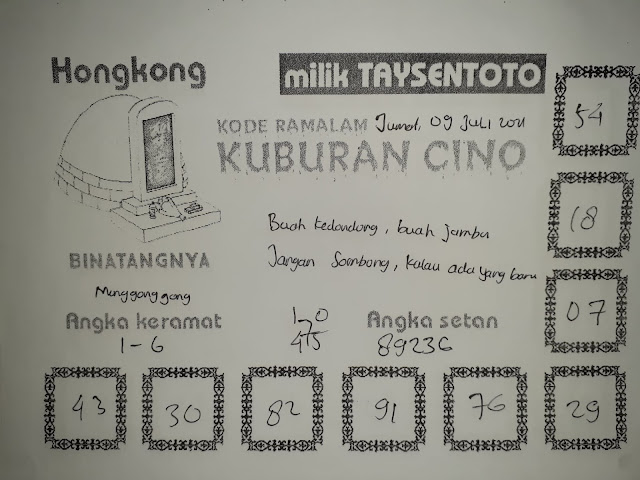 Hongkong
milik TAYSENTOTO
KODE RAMALAM Jumat, 09 Juli 2021
KUBURAN CINO
54
18
Buah kedondong, buah jambu
Jangan Sombong, kalau ada yang baru
BINATANGNYA
Menggonggong
07
Angka keramat
1-6
1 0
7
4 5
Angka setan
89236
43
30
82
91
76
29